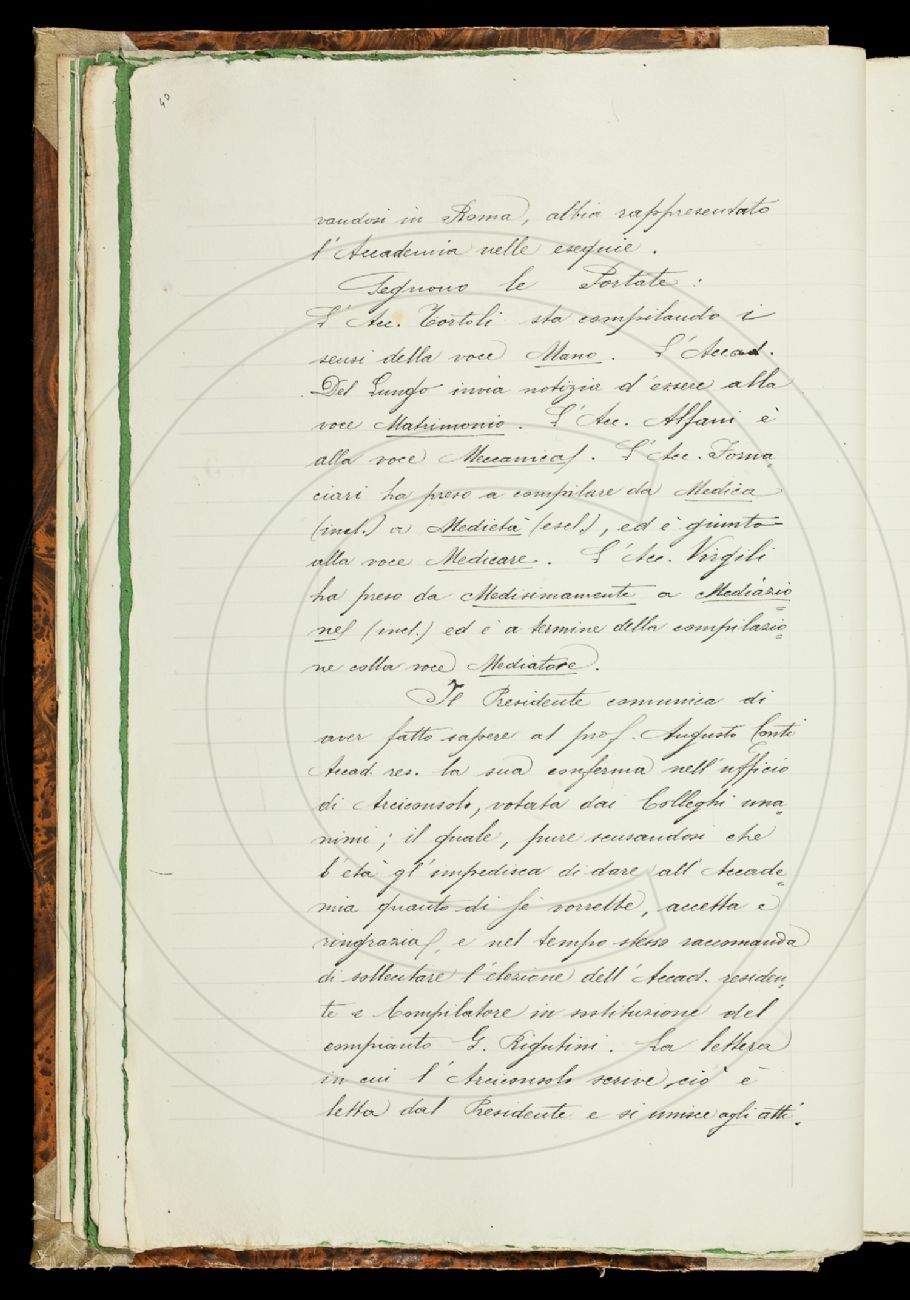 40
vandosi in Roma, abbia rappresentato
l'Accademia nelle esequie.
Seguono le Portate:
L'Acc. Tortoli sta compilando i
sensi della voce Mano. L'Accad.
Del Lungo invia notizia d'essere alla
voce Matrimonio. L'Acc. Alfani è
alla voce Meccanica. L'Acc. Forna„
ciari ha preso a compilare da Medica
(incl.) a Medietà (escl.), ed è giunto
alla voce Medicare. L'Acc. Virgili
ha preso da Medesimamente a Mediazio=
ne (incl.) ed è a termine della compilazio=
ne colla voce Mediatore.
Il Presidente comunica di
aver fatto sapere al prof. Augusto Conti
Accad. res. la sua conferma nell'ufficio
di Arciconsolo, votata dai Colleghi una„
nimi; il quale, pure scusandosi che
l'età gl'impedisca di dare all'Accade„
mia quanto di sé vorrebbe, accetta e
ringrazia, e nel tempo stesso raccomanda
di sollecitare l'elezione dell'Accad. residen„
te e Compilatore in sostituzione del
compianto G. Rigutini. La lettera
in cui l'Arciconsolo scrive ciò è
letta dal Presidente e si unisce agli atti.